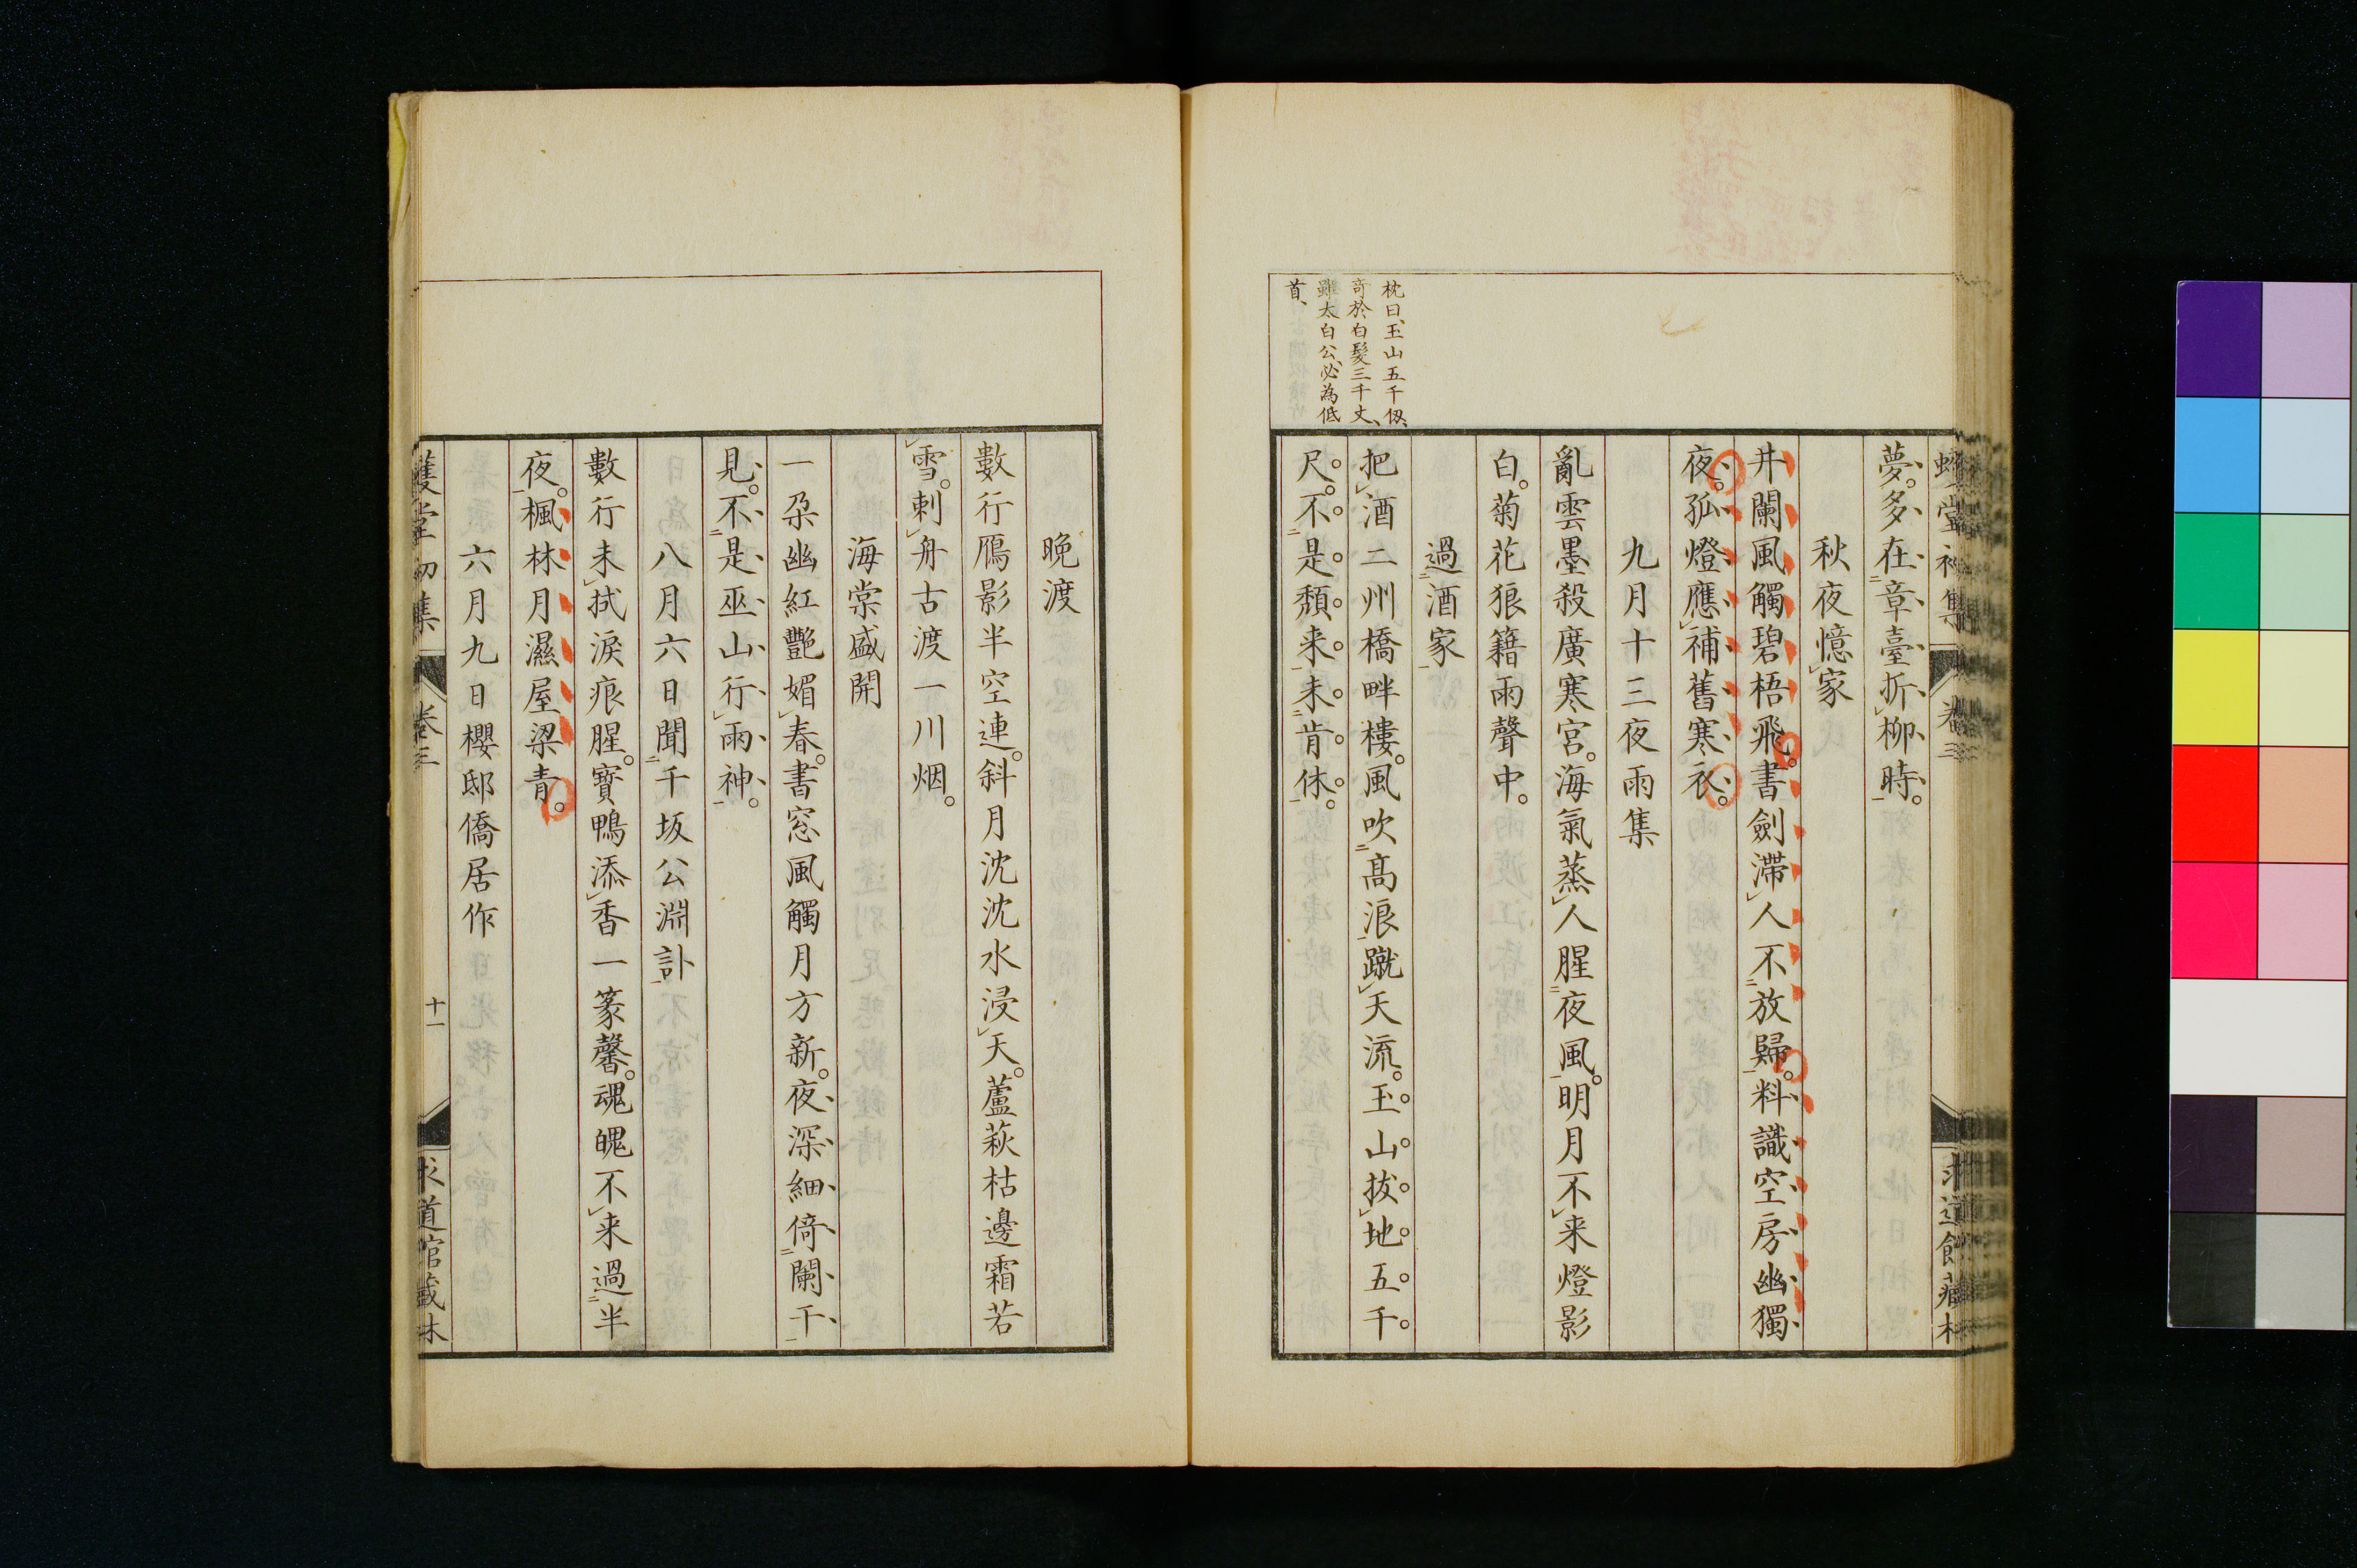 夢。多在章臺折柳時。
秋夜憶家
井闌風觸碧梧飛。書劍滯人不放歸。料識空房幽獨
夜。孤燈應補舊寒衣。
九月十三夜雨集
亂雲墨殺廣寒宮。海氣蒸人腥夜風。明月不来燈影
白。菊花狼籍雨聲中。
過酒家
把酒二州橋畔樓。風吹高浪蹴天流。玉山拔地五千
尺。不是頽来未肯休。
枕曰、玉山五千仭、
奇於白髮三千丈、
雖太白公、必為低
首、
晩渡
數行鴈影半空連。斜月沈沈水浸天。蘆萩枯邊霜若
雪。刺舟古渡一川烟。
海棠盛開
一朶幽紅艷媚春。書窓風觸月方新。夜深細倚闌干
見。不是巫山行雨神。
八月六日聞千坂公淵訃
數行未拭淚痕腥。寳鴨添香一篆馨。魂魄不来過半
夜。楓林月濕屋梁青。
六月九日櫻邸僑居作
卷三
十一
求道館藏